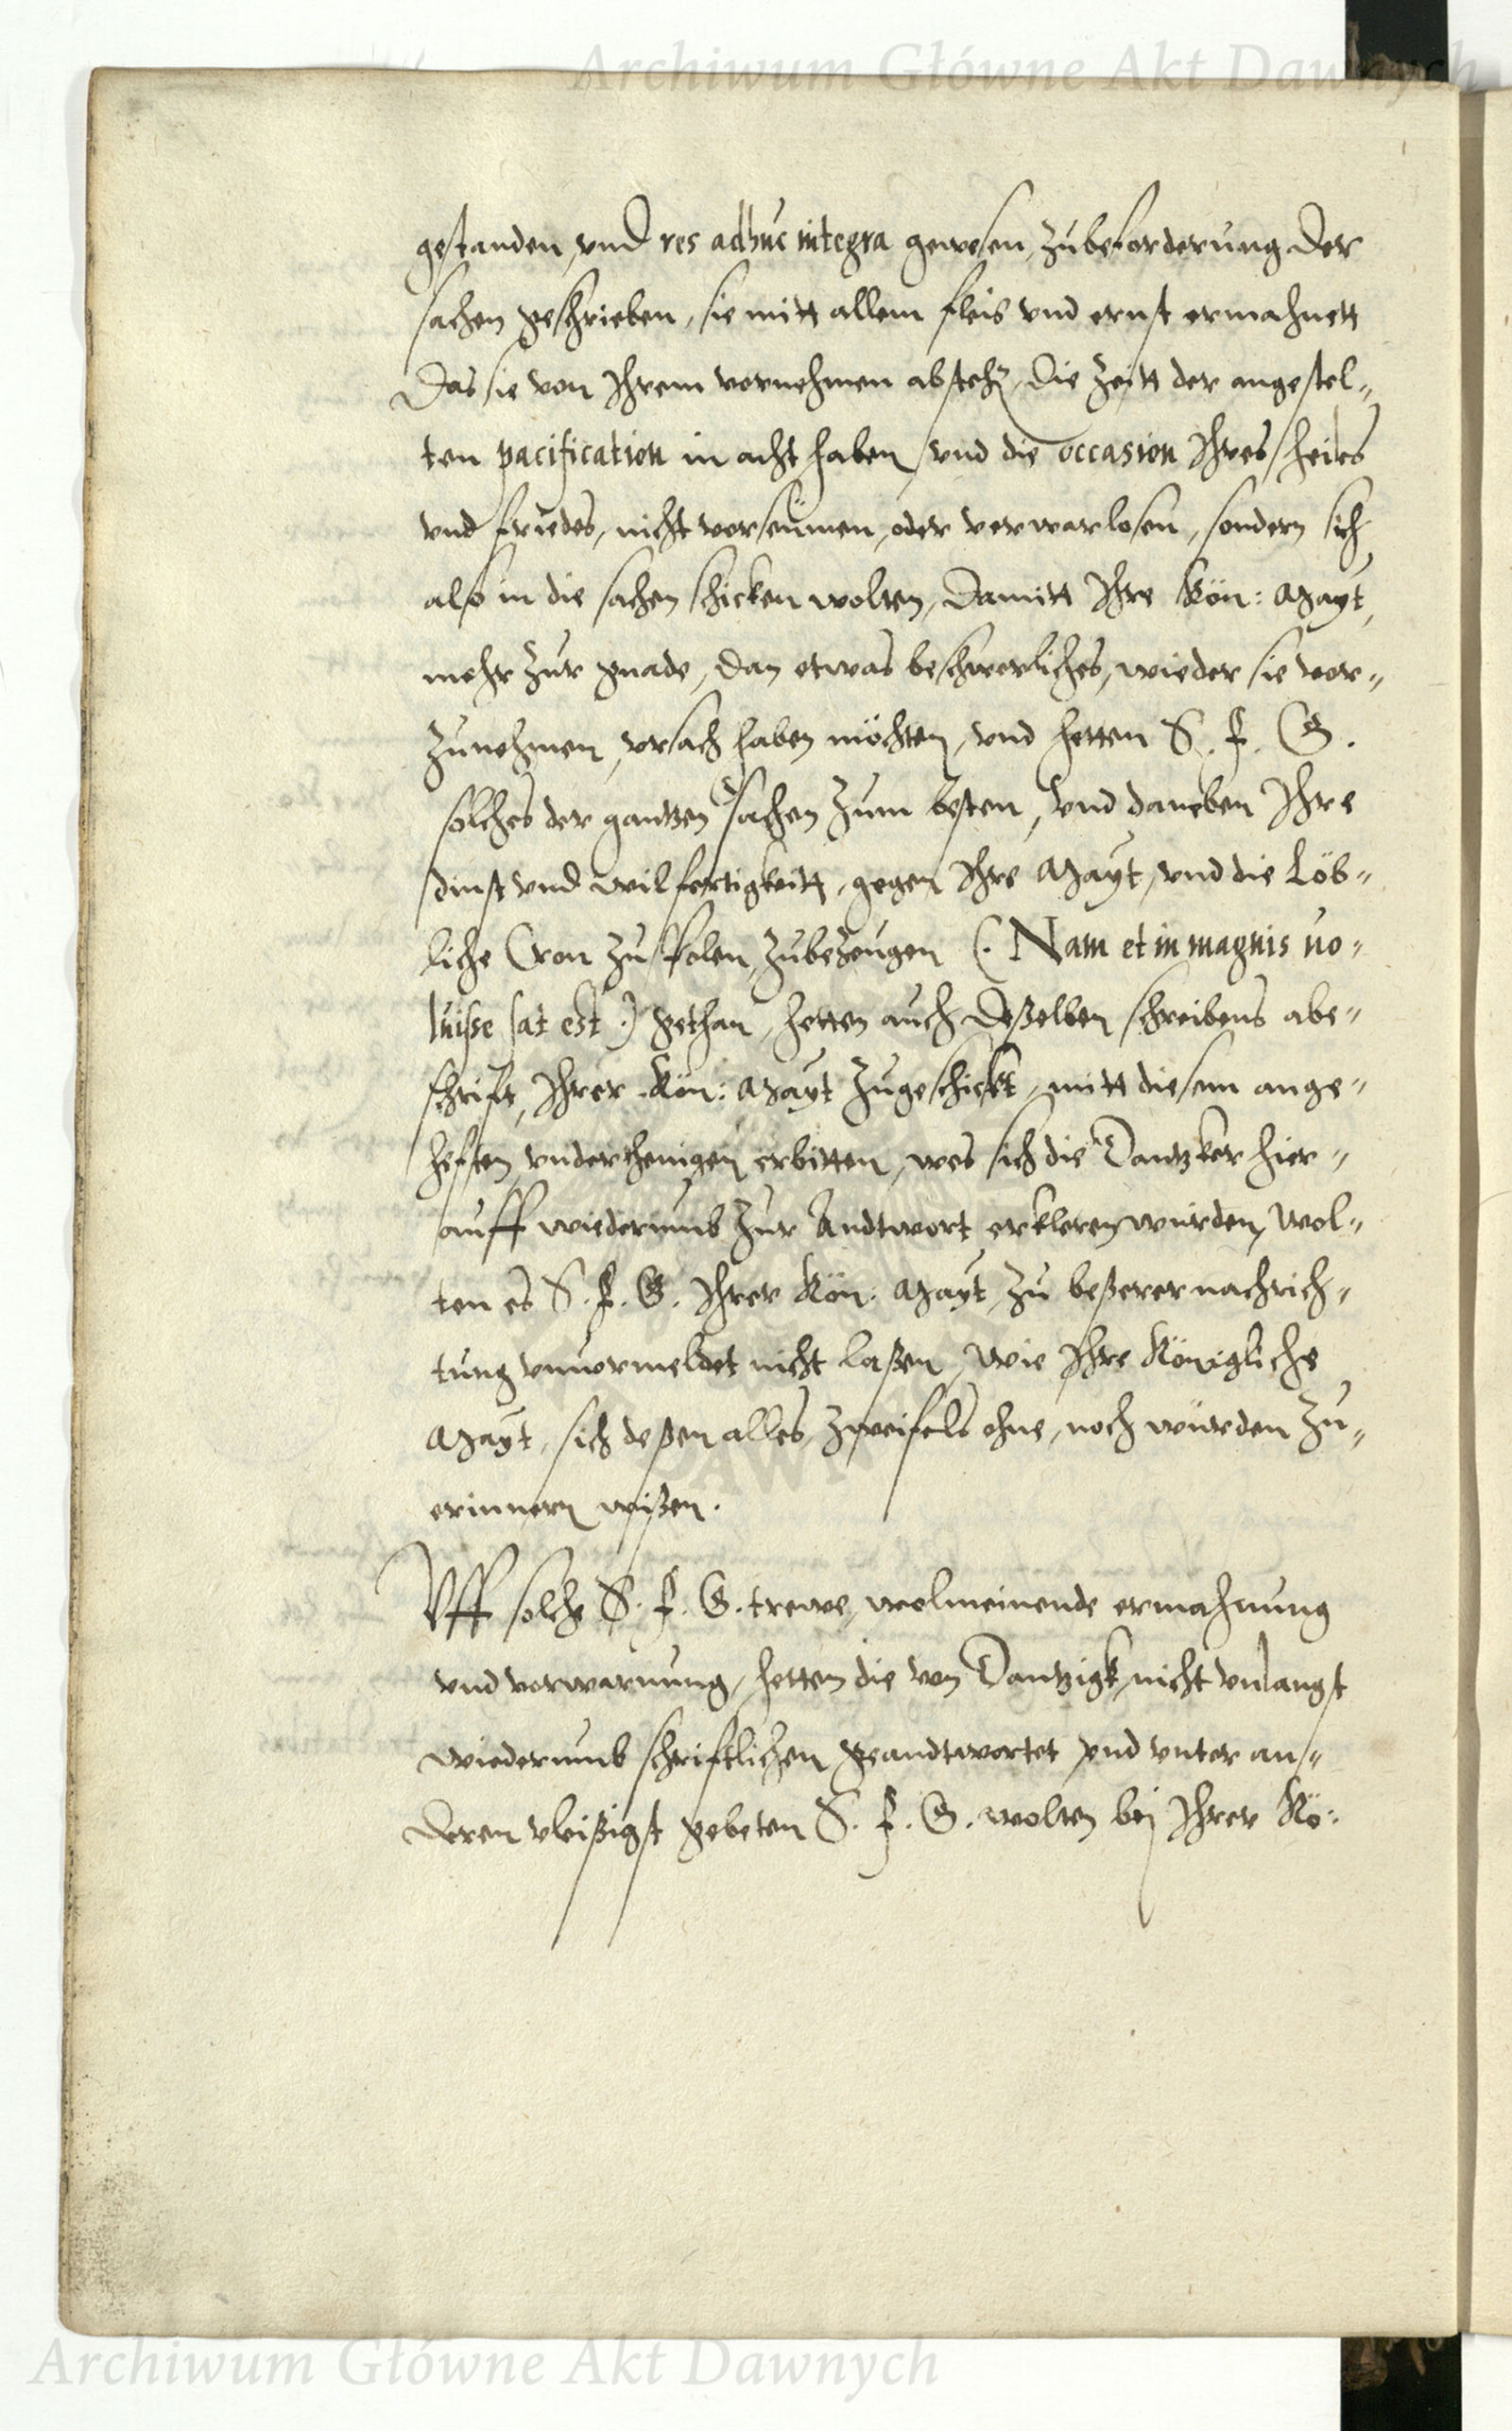 Archiwum Główne Akt Dawnych
gestanden, vnd res adhuc integra gewesen, zubeforderung der
sachen geschrieben, sie mitt allem fleis vnd ernst ermahnett
Das sie von Ihrem vornehmen abstehn, die Zeitt der angestel„
ten pacification in acht haben, vnd die occasion Ihres heiles
vnd friedes, nicht vorseumen, oder verwarlosen, sondern sich
also in die sachen schicken wolten, Damitt Ihre Kön: Mayt,
mehr zur gnade, dan etwas beschwerliches, wieder sie vor„
zunehmen, vrsach haben möchten, vnd hetten S. F. G.
solches der gantzen sachen zum besten, vnd daneben Ihre
dinst vnd wilfertigkeitt, gegen Ihre Mayt, vnd die Löb„
liche Cron zu Polen, zubezeugen (. Nam et in magnis uo„
luiße sat est .) gethan, hetten auch deßelben schreibens abe„
schrift, Ihrer Kön: Mayt zugeschickt, mitt diesem ange„
heften, vnderthenigen erbitten, wes sich die Dantzker hier„
auff wiederumb zur Andtwort erkleren würden, Wol„
ten es S. F. G. Ihrer Kön: Mayt, zu beßerer nachrich„
tung vnuormeldet nicht laßen, Wie Ihre Königliche
Mayt, sich deßen alles, zweifels ohne, noch würden zu„
erinnern wißen.
Vff solche S. F. G. trewe, wolmeinende ermahnung
vnd vorwarnung, hetten die von Dantzigk, nicht vnlangst
wiederumb schriftlichen geandtwortet, vnd vnter an„
deren vleißigst gebeten S. F. G. wolten bei Ihrer Kö„
Archiwum Główne Akt Dawnych